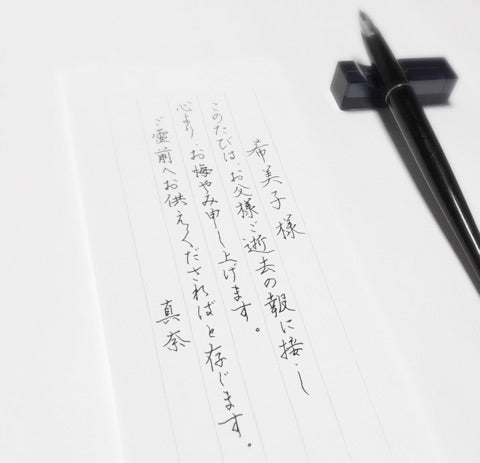 希美子様
このたびは、お父様ご逝去の報に接し
心よりお悔やみ申し上げます。
ご霊前へお供えくださればと存じます。
真奈